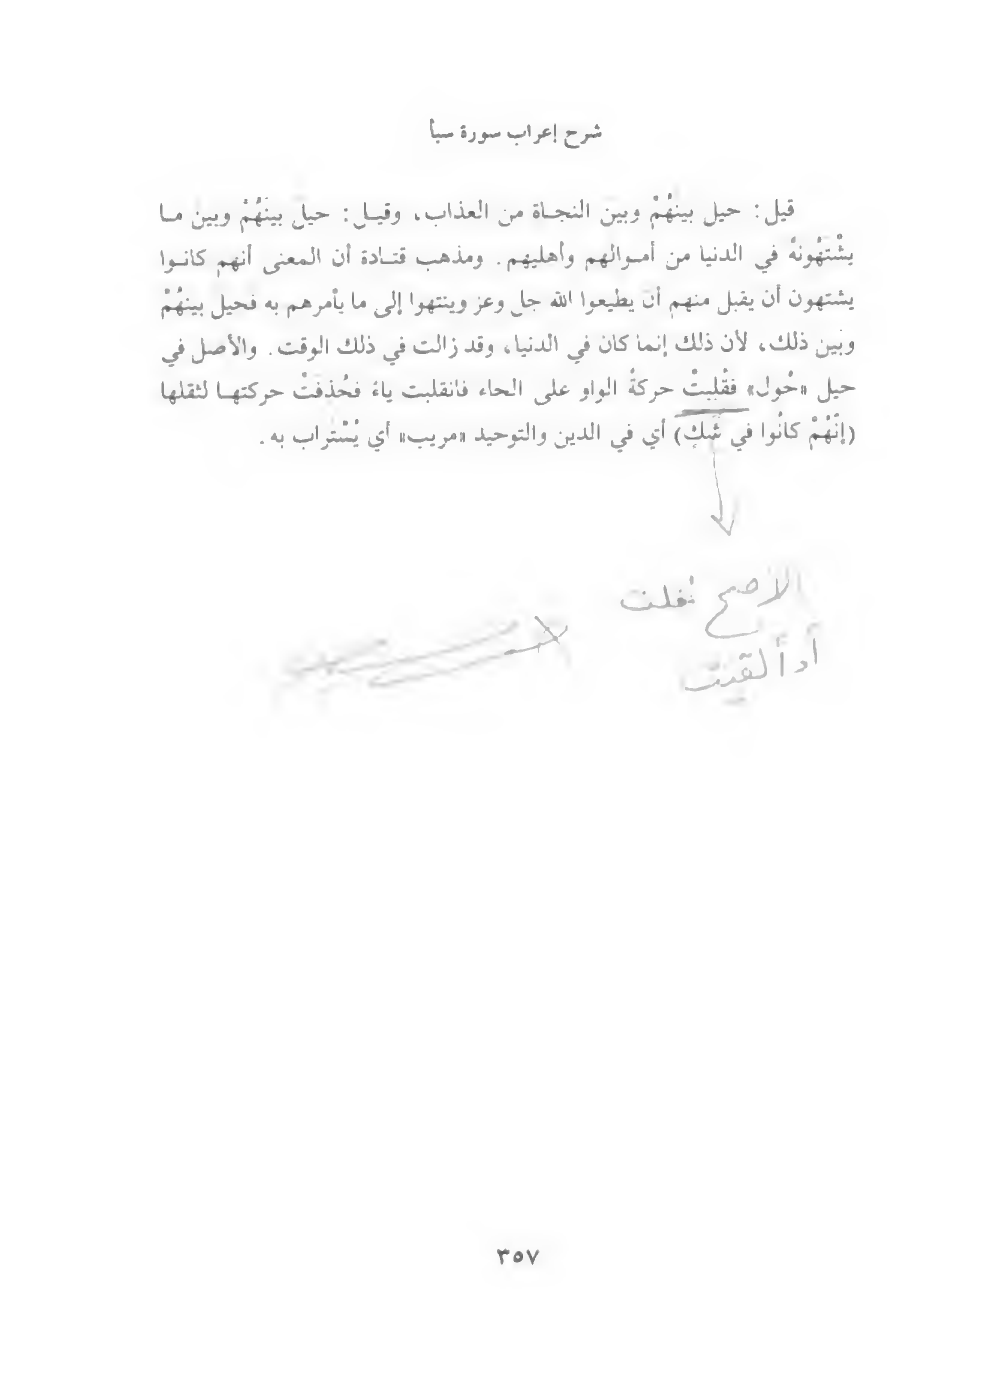 شرح إعراب سورة سبأ
قيل: حيل بينَهُمْ وبين النجـاة من العذاب، وقيـل: حيل بينَهُمْ وبين مـا
يشْتَهُونهُ في الدنيا من أمـوالهم وأهليهم. ومذهب قتـادة أن المعنى أنهم كانـوا
يشتهون أن يقبل منهم أن يطيعوا الله جل وعز وينتهوا إلى ما يأمرهم به فحيل بينهُمْ
وبين ذلك، لأن ذلك إنما كان في الدنيا، وقد زالت في ذلك الوقت. والأصل في
حيل «حُول» فقُلِبتْ حركةُ الواو على الحاء فانقلبت ياءً فحُذفَتْ حركتهـا لثقلها
(إنّهُمْ كانُوا في شَكٍ) أي في الدين والتوحيد «مريب» أي يُسْتراب به.
الأصح نُقلت
أو ألقيت
٣٥٧